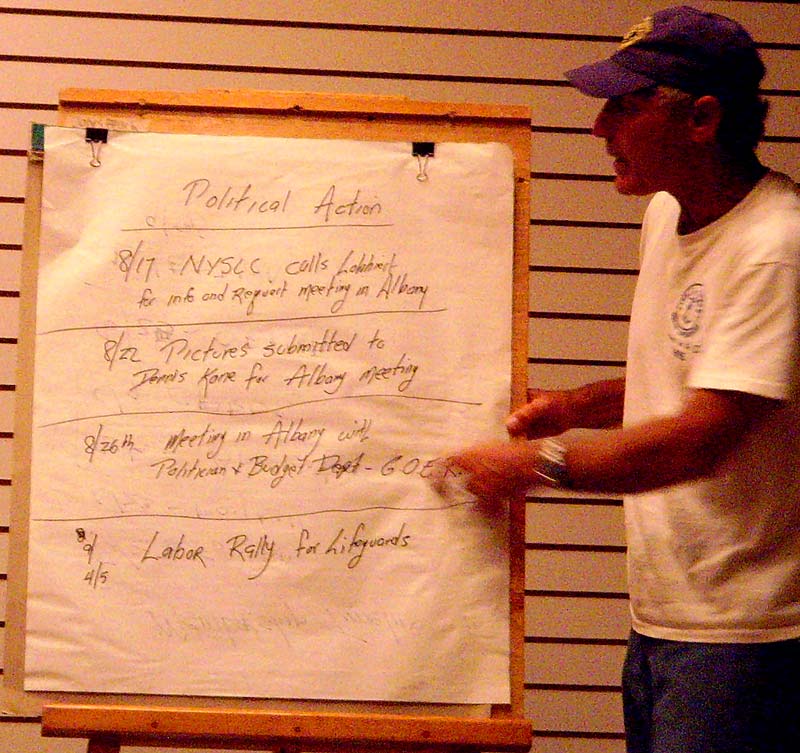 Political Action
8/17 NYSLC calls Lobbyist
for info and Request meeting in Albany
8/22 Pictures submitted to
Dennis Kane for Albany meeting
8/26th Meeting in Albany with
Politician + Budget Dept - G.O.E.R.
9/
4/5
Labor Rally for Lifeguards